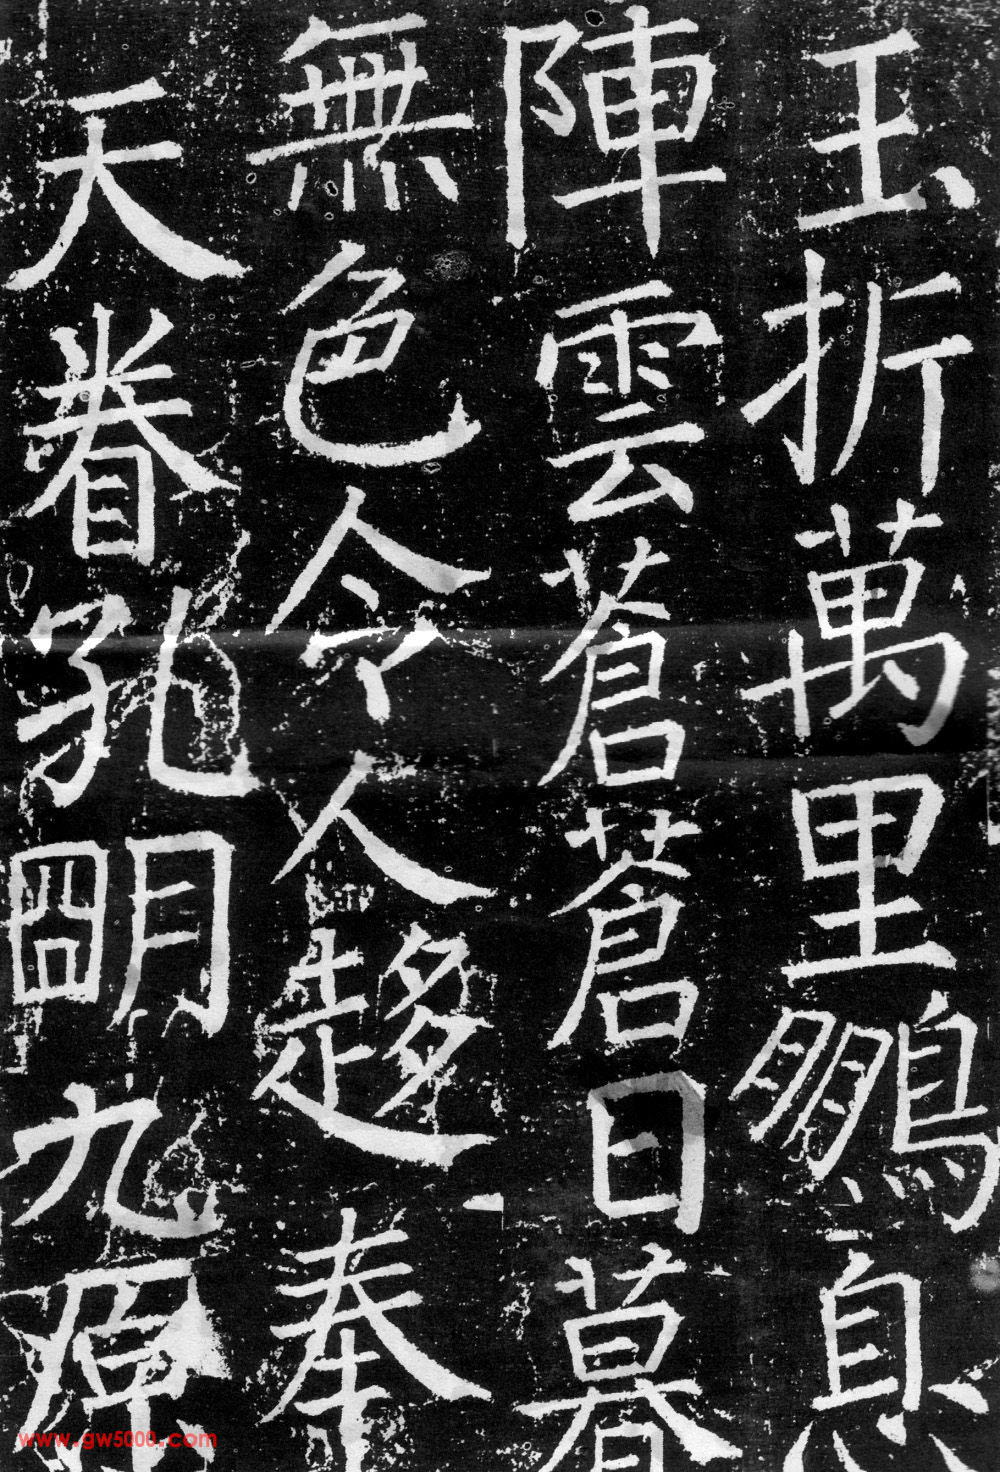 玉折萬里鵬息
陣雲蒼蒼日暮
無色令人趍奉
天眷孔明九原
www.gw5000.com